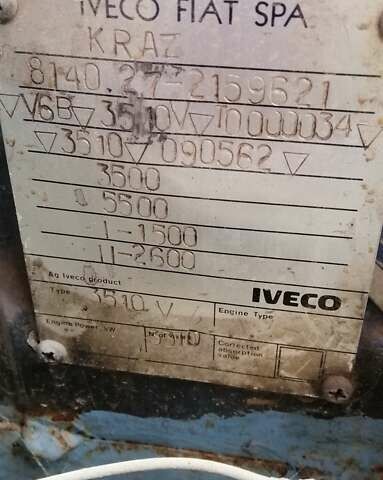 IVECO FIAT SPA
KRAZ
8140.27-2159621
V6B 3510V 10000034
3510 090562
3500
5500
1-1500
11-2600
Ag Iveco product
IVECO
Type 3510 V
Engine Type
Engine Power kW
N° of axles
Corrected
absorption
value